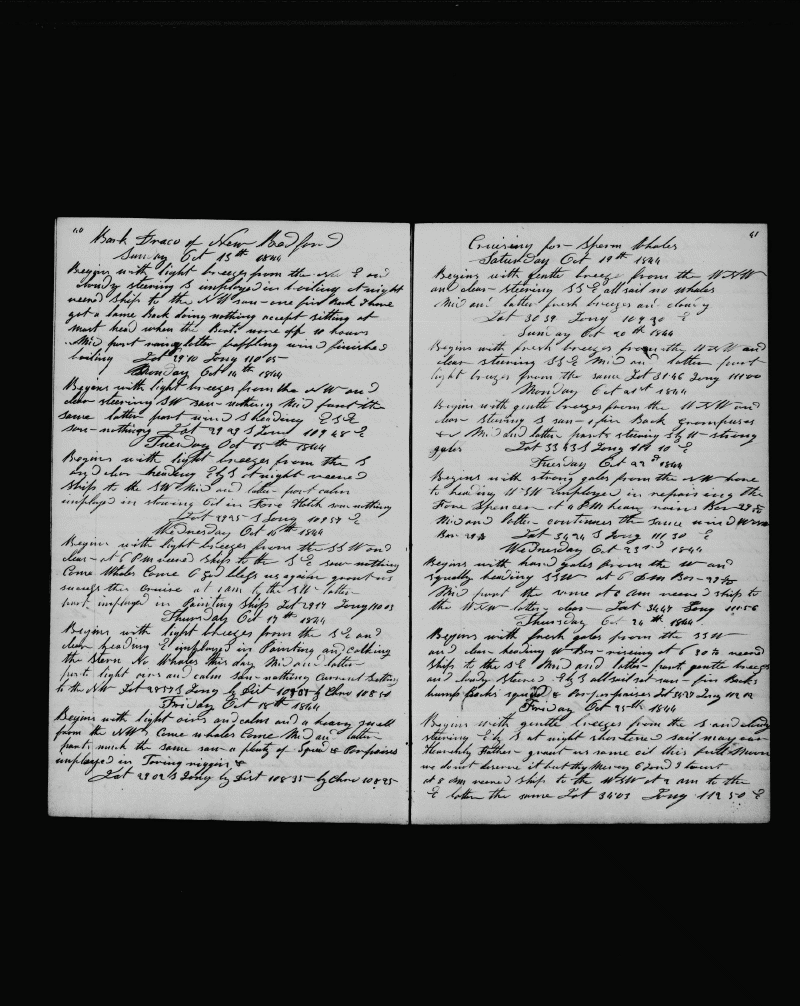 40
Bark Draco of New Bedford
Sunday Oct 13th 1844
Begins with light breezes from the N E and
cloudy steering S imployed in boiling at night
veered ship to the NW saw one fin Back I have
got a lame Back doing nothing accept sitting at
mast head when the Boats were off 10 hours
Mid part rainy latter baffling wind finished
boiling Lat 29 10 Long 110 05
Monday Oct 14th 1844
Begins with light breezes from the NW and
clear steering SW saw nothing Mid part the
same latter part wind S heading E S E
saw nothing Lat 29 29 S Long 109 48 E
Tuesday Oct 15th 1844
Begins with light breezes from the S
and clear heading E by S at night veered
Ship to the SW Mid and latter part calm
imployed in stowing Oil in Fore Hatch saw nothing
Lat 29 25 S Long 109 57 E
Wednesday Oct 16th 1844
Begins with light breezes from the SSW and
clear at 6 PM veered Ship to the S E saw nothing
Come Whales Come O God bless us again grant us
success this cruise at 1 AM to the SW latter
part imployed in Painting Ship Lat 29 17 Long 110 03
Thursday Oct 17th 1844
Begins with light breezes from the S E and
clear heading E imployed in Painting and
the Stern No Whales this day Mid and latter
parts light airs and calm saw nothing Current Setting
to the NW Lat 28 57 S Long by Dist 109 05 by Chro 108 50
Friday Oct 18th 1844
Begins with light airs and calm and a heavy swell
from the NW Come whales Come Mid and latter
parts much the same saw a plenty of Squid & Porpoises
imployed in Taring riggin &
Lat 29 02 S Long by Dist 108 35 by Chro 108 25
41
Cruising for Sperm Whales
Saturday Oct 19th 1844
Begins with gentle breeze from the WNW
and clear steering SSE all sail no whales
Mid and latter fresh breezes and cloudy
Lat 30 39 Long 109 30 E
Sunday Oct 20th 1844
Begins with fresh breezes from the WNW and
clear steering SSE Mid and latter part
light breezes from the same Lat 31 46 Long 111 00
Monday Oct 21st 1844
Begins with gentle breezes from the WNW and
clear steering S saw 1 fin Back Grampuses
&c Mid and latter parts steering S by W strong
gales Lat 33 43 S Long 111 10 E
Tuesday Oct 22d 1844
Begins with strong gales from the NW hove
to heading WSW imployed in repairing the
Fore Spencer at 8 PM heavy rains Bar
Mid and latter continues the same wind
Bar Lat 34 24 S Long 111 30 E
Wednesday Oct 23rd 1844
Begins with hard gales from the W and
squally heading SSW at 6 PM Bar
Mid part the same at 2 am veered ship to
the WNW latter clear Lat 34 47 Long 111 56
Thursday Oct 24th 1844
Begins with fresh gales from the SSW
and clear heading W Bar raising at 6 veered
Ship to the S E Mid and latter part gentle breezes
and cloudy Steered E by S all sail set saw fin Backs
hump Backs squid & Porpoises Lat 34 29 Long 112 02
Friday Oct 25th 1844
Begins with gentle breezes from the S and cloudy
steering E by S at night shortened sail may our
Heavenly Father grant us some oil this full Moon
we do not deserve it but thy Mercy O God I trust
at 8 PM veered Ship to the WSW at 2 am to the
E latter the same Lat 34 03 Long 112 50 E